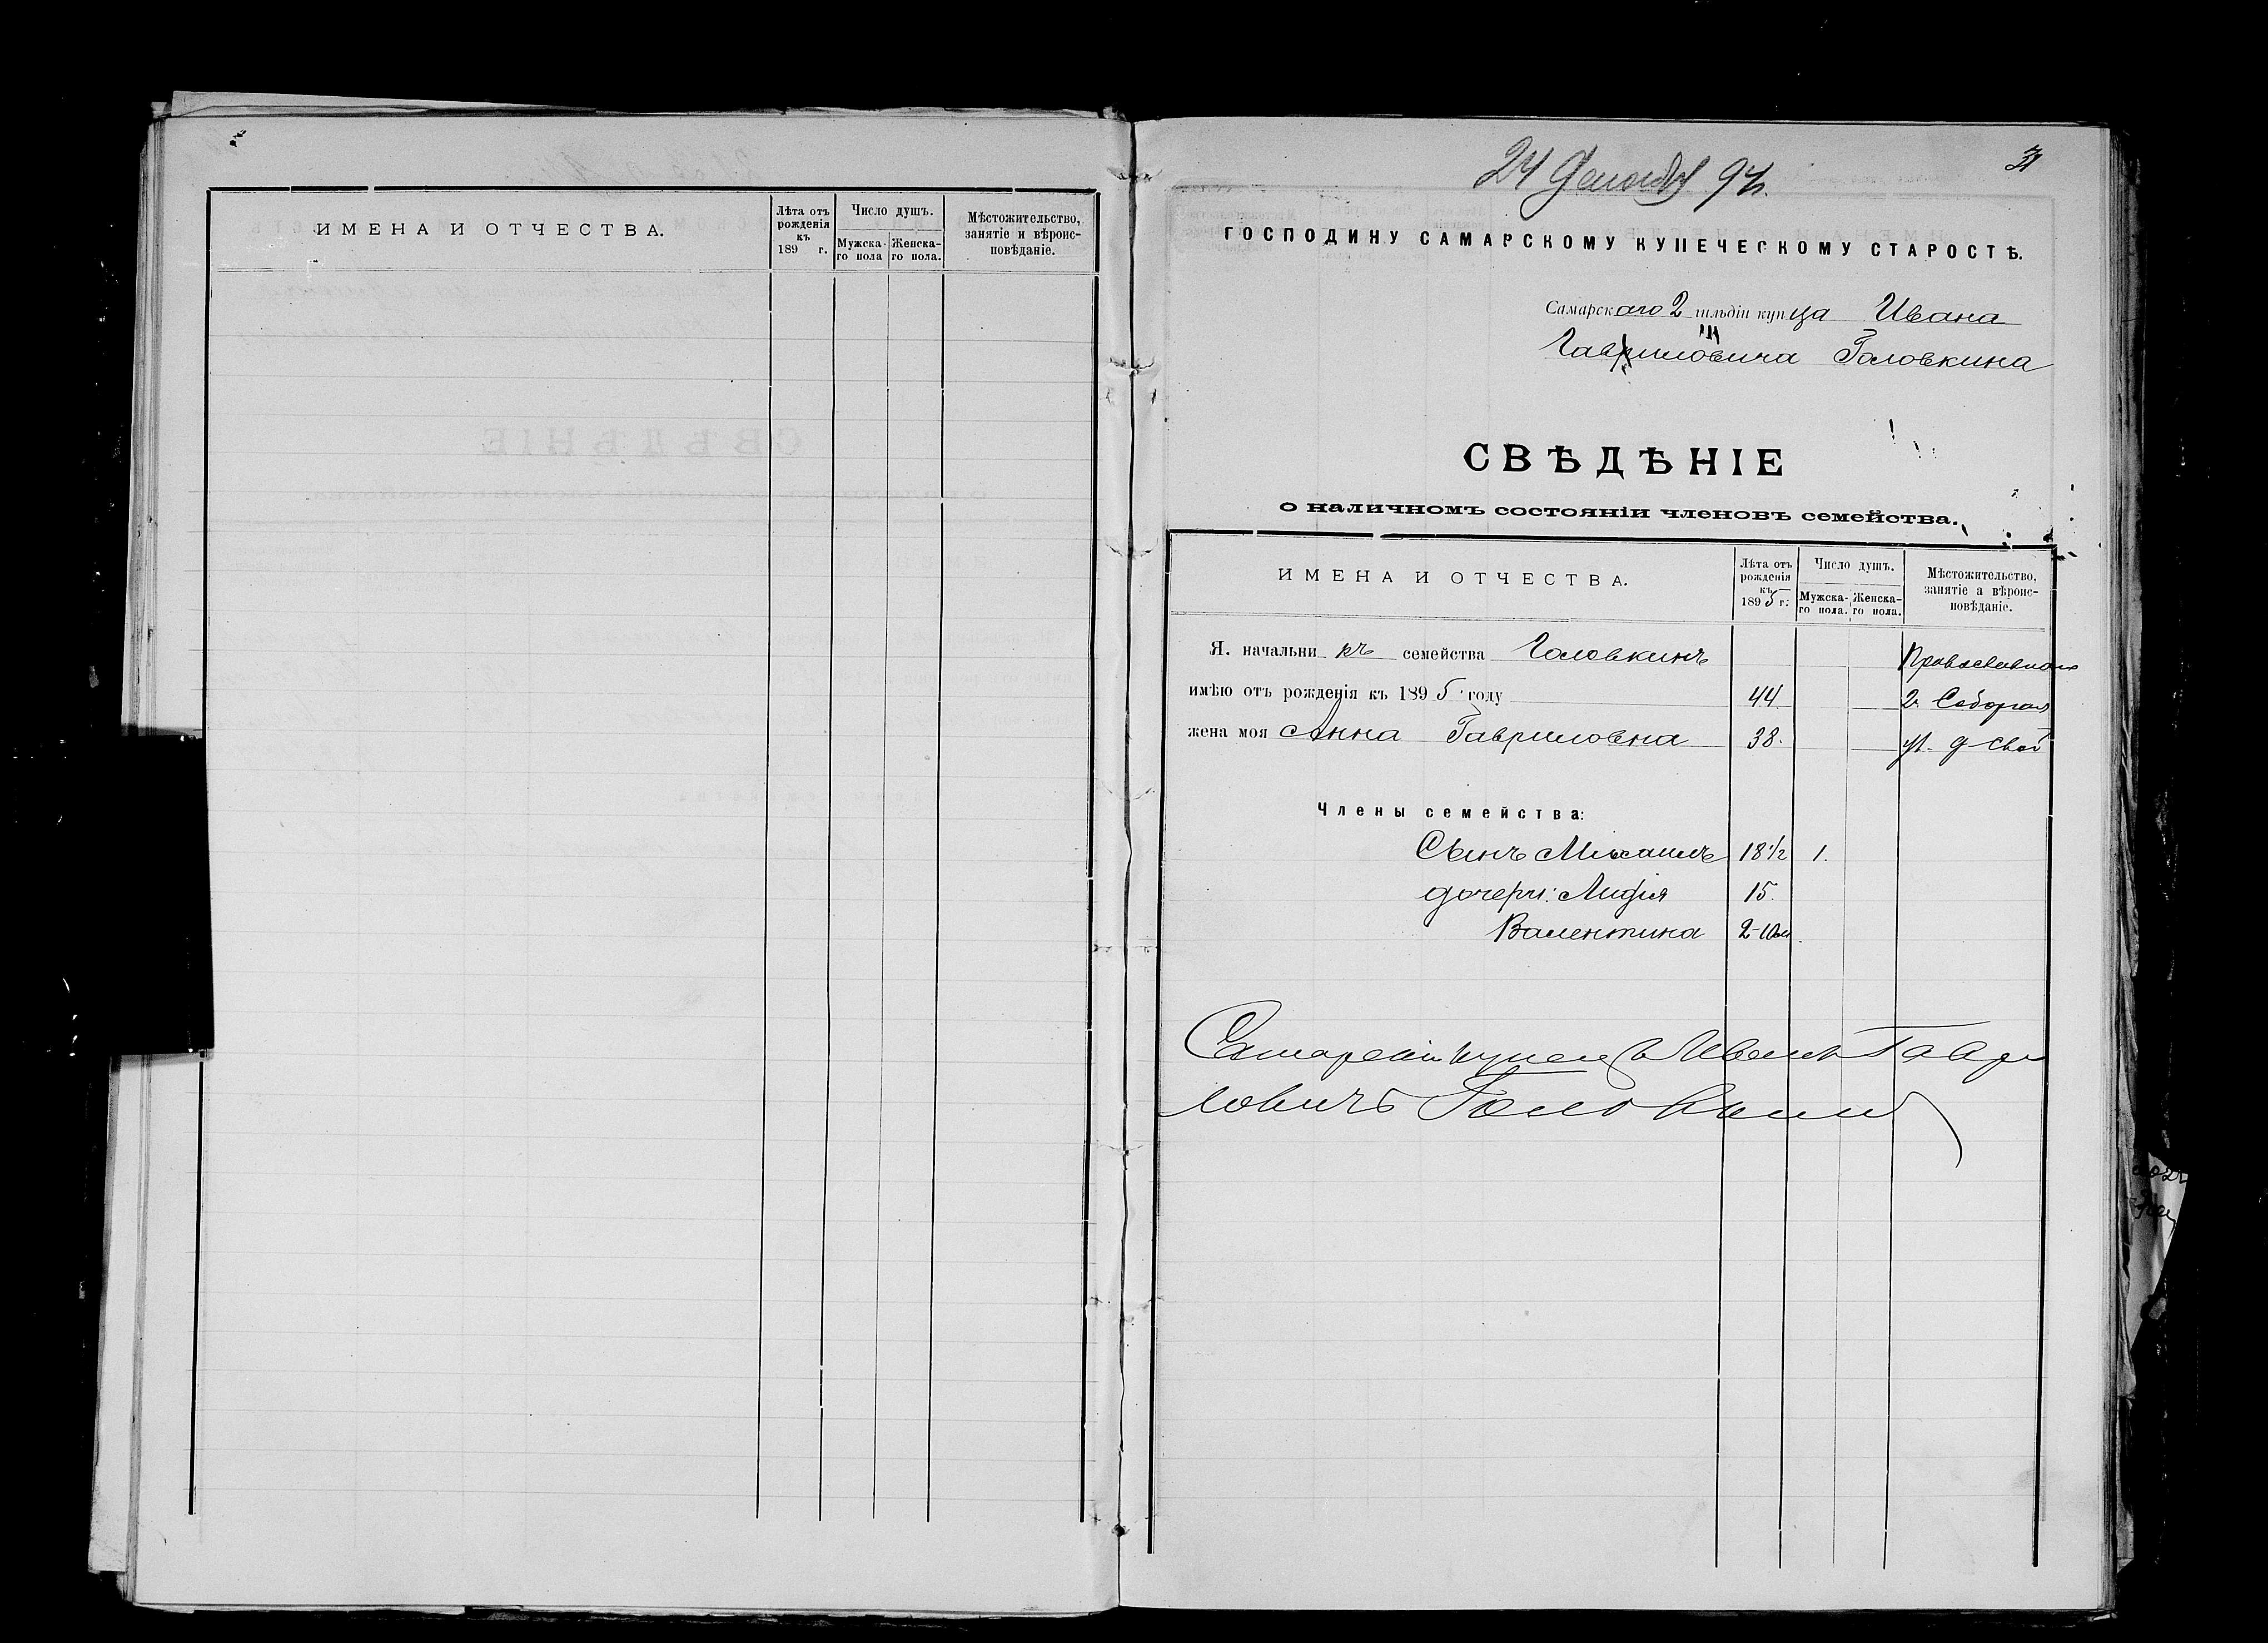 ИМЕНА И ОТЧЕСТВА.
Лѣта отъ рожденія къ 189 г.
Число душъ.
Мужска-го пола
Женска-го пола.
Мѣстожительство, занятіе и вѣроис-повѣданіе.
31
24 Декабря 94 г.
ГОСПОДИНУ САМАРСКОМУ КУПЕЧЕСКОМУ СТАРОСТѢ.
Самарскаго 2 гильдіи купца Ивана
Гавриловича Головкина
СВѢДѢНІЕ
о наличномъ состояніи членовъ семейства.
ИМЕНА И ОТЧЕСТВА.
Лѣта отъ рожденія къ 1895 г.
Число душъ.
Мужска-го пола.
Женска-го пола.
Мѣстожительство, занятіе а вѣроис-повѣданіе.
Я. начальникъ семейства Головкинъ Православнаго
имѣю отъ рожденія къ 1895 году 44 2. Соборная
жена моя Анна Гавриловна 38. ул. д свой
Члены семейства:
Сынъ Михаилъ 18 1/2 1.
дочери: Лидія 15.
Валентина 2-10 м.
Самарскій купецъ Иванъ Гаври
ловичъ Головкинъ